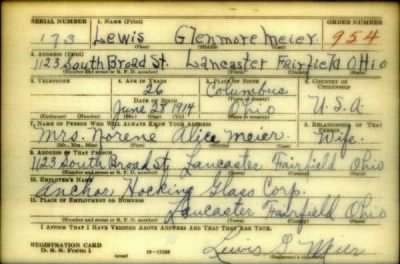 SERIAL NUMBER 1. NAME (Print) ORDER NUMBER
173 Lewis Glenmore Meier 954
(First) (Middle) (Last)
2. ADDRESS (Print)
1123 South Broad St. Lancaster Fairfield Ohio
(Number and street or R. F. D. number) (Town) (County) (State)
3. TELEPHONE 4. AGE IN YEARS 5. PLACE OF BIRTH 6. COUNTRY OF CITIZENSHIP
26 Columbus
DATE OF BIRTH (Town or county)
June 28 1914 Ohio U.S.A
(Exchange) (Number) (Mo.) (Day) (Yr.) (State or country)
7. NAME OF PERSON WHO WILL ALWAYS KNOW YOUR ADDRESS 8. RELATIONSHIP OF THAT PERSON
Mrs. Norene Alice Meier. Wife.
(Mr., Mrs., Miss) (First) (Middle) (Last)
9. ADDRESS OF THAT PERSON
1123 South Broad St. Lancaster Fairfield Ohio
(Number and street or R. F. D. number) (Town) (County) (State)
10. EMPLOYER'S NAME
Anchor Hocking Glass Corp.
11. PLACE OF EMPLOYMENT OR BUSINESS
Lancaster Fairfield Ohio
(Number and street or R. F. D. number) (Town) (County) (State)
I AFFIRM THAT I HAVE VERIFIED ABOVE ANSWERS AND THAT THEY ARE TRUE.
REGISTRATION CARD
D. S. S. Form 1 (over) Lewis G. Meier